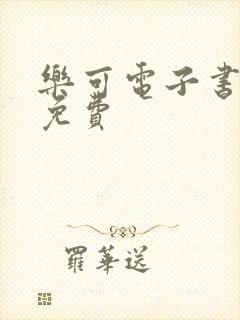 樂可電子書
免費
羅華送